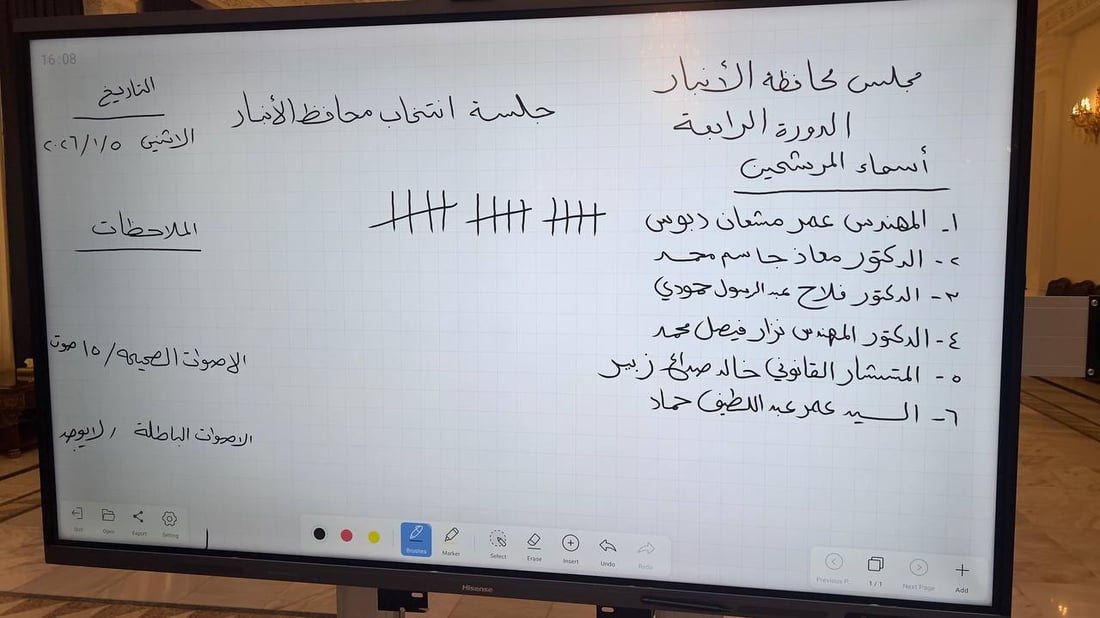 16:08
مجلس محافظة الأنبار
الدورة الرابعة
جلسة انتخاب محافظ الأنبار
التاريخ
الاثنين ٢٠٢٦/١/٥
أسماء المرشحين
١- المهندس عمر مشعان دبوس
٢- الدكتور معاذ جاسم محمد
٣- الدكتور فلاح عبد الرسول حمودي
٤- الدكتور المهندس نزار فيصل محمد
٥- المستشار القانوني خالد زبير
٦- السيد عمر عبد اللطيف حماد
الملاحظات
الاصوات الصحيحة / ١٥ صوت
الاصوات الباطلة / لا يوجد
Open
Export
Setting
Brushes
Marker
Select
Erase
Insert
Undo
Redo
Previous P..
1/1
Next Page
Add
Hisense